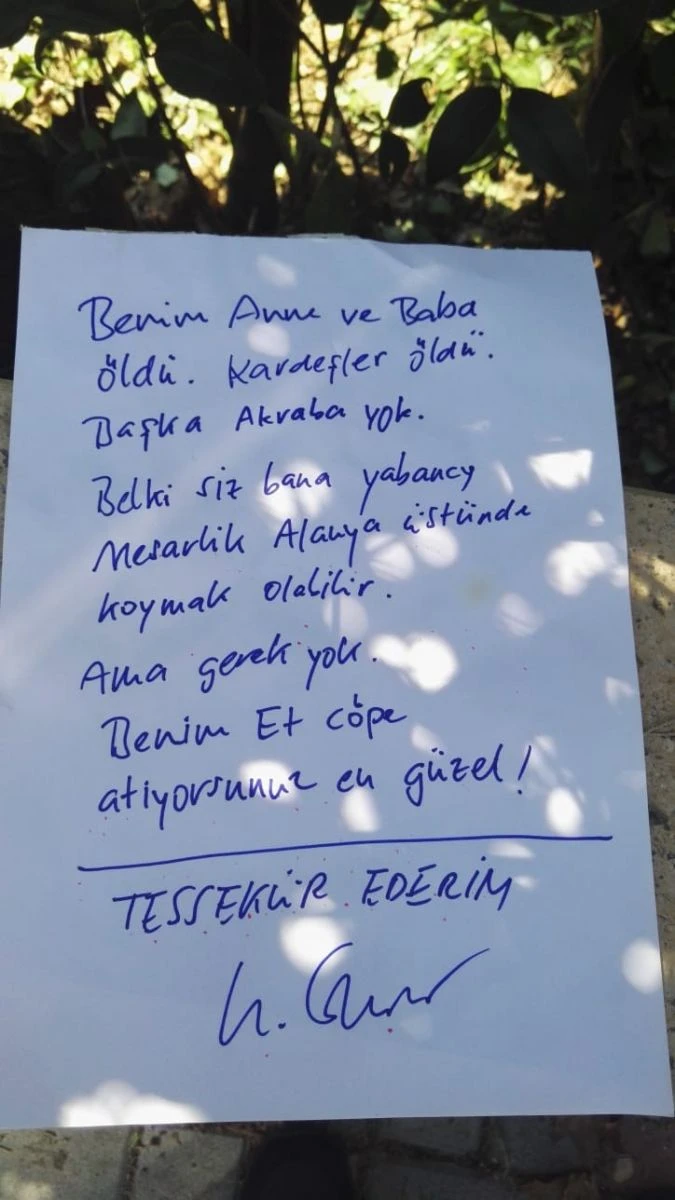 Benim Anne ve Baba
öldü. Kardeşler öldü.
Başka Akraba yok.
Belki siz bana yabancy
Mesarlik Alanya üstünde
koymak olabilir.
Ama gerek yok.
Benim Et cöpe
atiyorsunuz en güzel!
TESSEKÜR EDERİM